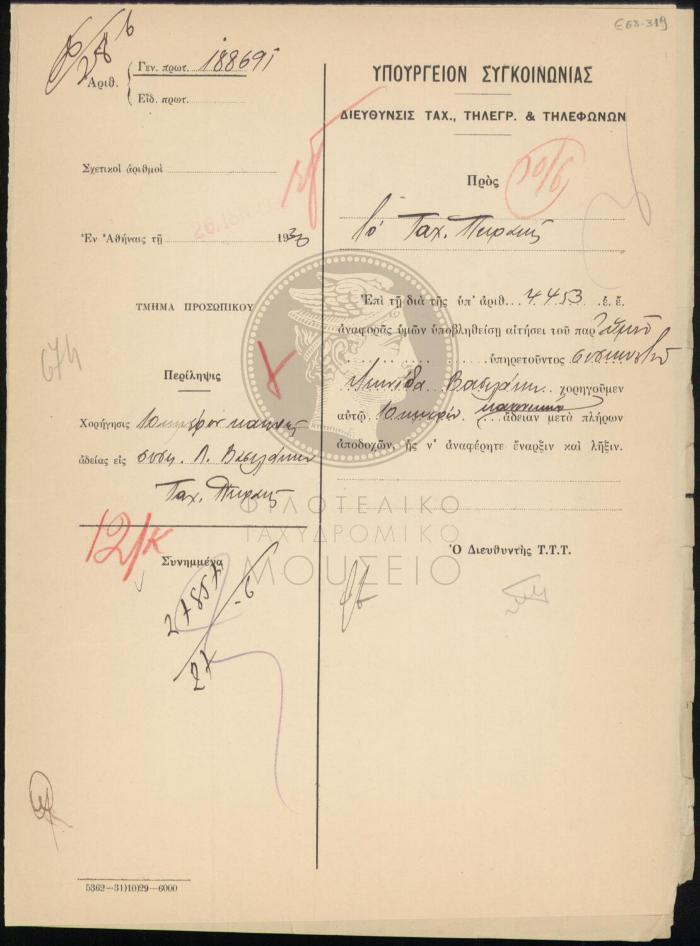 Ε68-319
28/6
Ἀριθ.
Γεν. πρωτ. 188691
Εἰδ. πρωτ.
Σχετικοὶ ἀριθμοὶ
Ἐν Ἀθήναις τῇ 26 1930
ΤΜΗΜΑ ΠΡΟΣΩΠΙΚΟΥ
674
Περίληψις
Χορήγησις 10ημέρου κανον.
ἀδείας εἰς συσκ. Λ. Βασιλάκην
Ταχ. Πειραιῶς
12/κ
Συνημμένα
27857
27-6
5362—31)10)29—6000
ΥΠΟΥΡΓΕΙΟΝ ΣΥΓΚΟΙΝΩΝΙΑΣ
ΔΙΕΥΘΥΝΣΙΣ ΤΑΧ., ΤΗΛΕΓΡ. & ΤΗΛΕΦΩΝΩΝ
30/6
Πρὸς
Τὸ Ταχ. Πειραιῶς
Ἐπὶ τῇ διὰ τῆς ὑπ' ἀριθ. 4453 ἐ. ἔ.
ἀναφορᾶς ὑμῶν ὑποβληθείσῃ αἰτήσει τοῦ παρ' ὑμῖν
ὑπηρετοῦντος συσκευαστοῦ
Λεωνίδα Βασιλάκη χορηγοῦμεν
αὐτῷ 10ήμερον κανονικὴν ἄδειαν μετὰ πλήρων
ἀποδοχῶν, ἧς ν' ἀναφέρητε ἔναρξιν καὶ λῆξιν.
Ὁ Διευθυντὴς Τ.Τ.Τ.
ΦΙΛΟΤΕΛΙΚΟ
ΤΑΧΥΔΡΟΜΙΚΟ
ΜΟΥΣΕΙΟ